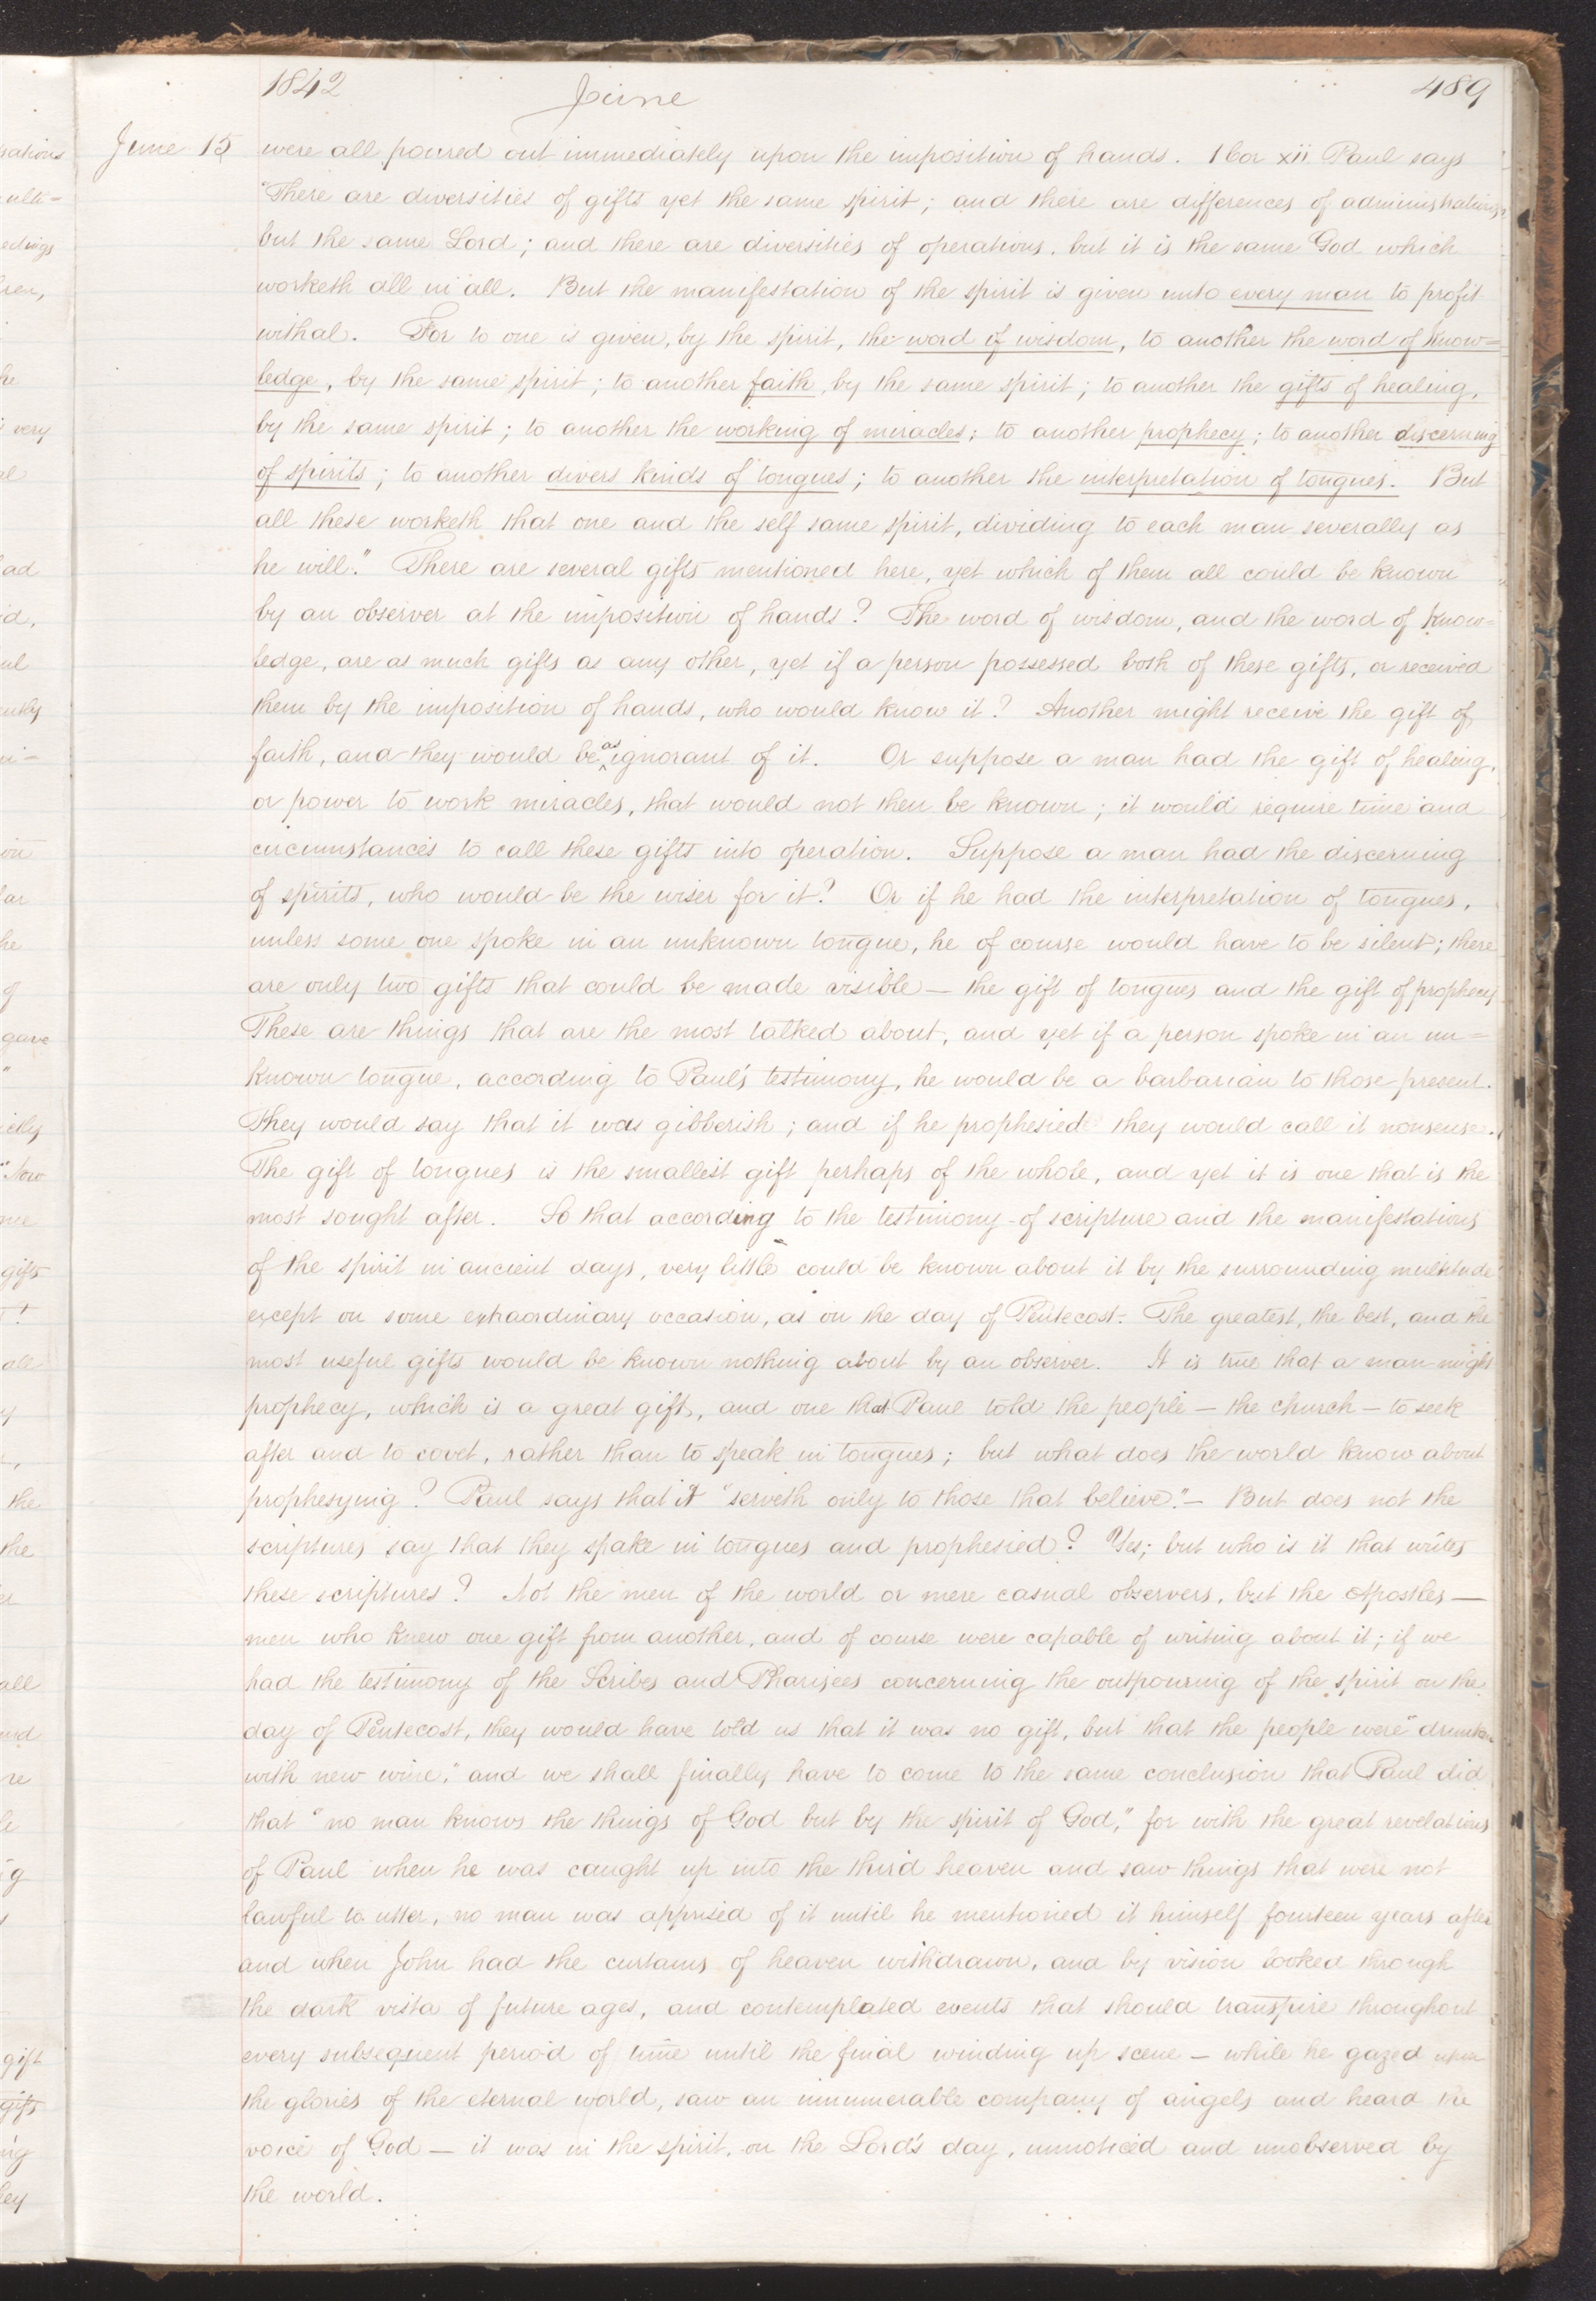 1842 June 489
June 15 were all poured out immediately upon the imposition of hands. 1 Cor xii Paul says
"There are diversities of gifts yet the same spirit; and there are differences of administrations,
but the same Lord; and there are diversities of operations, but it is the same God which
worketh all in all. But the manifestation of the spirit is given unto every man to profit
withal. For to one is given, by the spirit, the word of wisdom, to another the word of know=
ledge, by the same spirit; to another faith, by the same spirit; to another the gifts of healing,
by the same spirit; to another the working of miracles; to another prophecy; to another discerning
of spirits; to another divers kinds of tongues; to another the interpretation of tongues. But
all these worketh that one and the self same spirit, dividing to each man severally as
he will." There are several gifts mentioned here, yet which of them all could be known
by an observer at the imposition of hands? The word of wisdom, and the word of know=
ledge, are as much gifts as any other, yet if a person possessed both of these gifts, or received
them by the imposition of hands, who would know it? Another might receive the gift of
faith, and they would be as ignorant of it. Or suppose a man had the gift of healing,
or power to work miracles, that would not then be known; it would require time and
circumstances to call these gifts into operation. Suppose a man had the discerning
of spirits, who would be the wiser for it? Or if he had the interpretation of tongues,
unless some one spoke in an unknown tongue, he of course would have to be silent; there
are only two gifts that could be made visible — the gift of tongues and the gift of prophecy
These are things that are the most talked about, and yet if a person spoke in an un=
known tongue, according to Paul's testimony, he would be a barbarian to those present.
They would say that it was gibberish; and if he prophesied they would call it nonsense.
The gift of tongues is the smallest gift perhaps of the whole, and yet it is one that is the
most sought after. So that according to the testimony of scripture and the manifestations
of the spirit in ancient days, very little could be known about it by the surrounding multitude
except on some extraordinary occasion, as on the day of Pentecost. The greatest, the best, and the
most useful gifts would be known nothing about by an observer. It is true that a man might
prophecy, which is a great gift, and one that Paul told the people — the church — to seek
after and to covet, rather than to speak in tongues; but what does the world know about
prophesying? Paul says that it "serveth only to those that believe." — But does not the
scriptures say that they spake in tongues and prophesied? Yes; but who is it that writes
these scriptures? Not the men of the world or mere casual observers, but the Apostles —
men who knew one gift from another, and of course were capable of writing about it; if we
had the testimony of the Scribes and Pharisees concerning the outpouring of the spirit on the
day of Pentecost, they would have told us that it was no gift, but that the people were "drunken
with new wine," and we shall finally have to come to the same conclusion that Paul did
that "no man knows the things of God but by the spirit of God," for with the great revelations
of Paul when he was caught up into the third heaven and saw things that were not
lawful to utter, no man was apprised of it until he mentioned it himself fourteen years after
and when John had the curtains of heaven withdrawn, and by vision looked through
the dark vista of future ages, and contemplated events that should transpire throughout
every subsequent period of time until the final winding up scene — while he gazed upon
the glories of the eternal world, saw an innumerable company of angels and heard the
voice of God — it was in the spirit, on the Lord's day, unnoticed and unobserved by
the world.